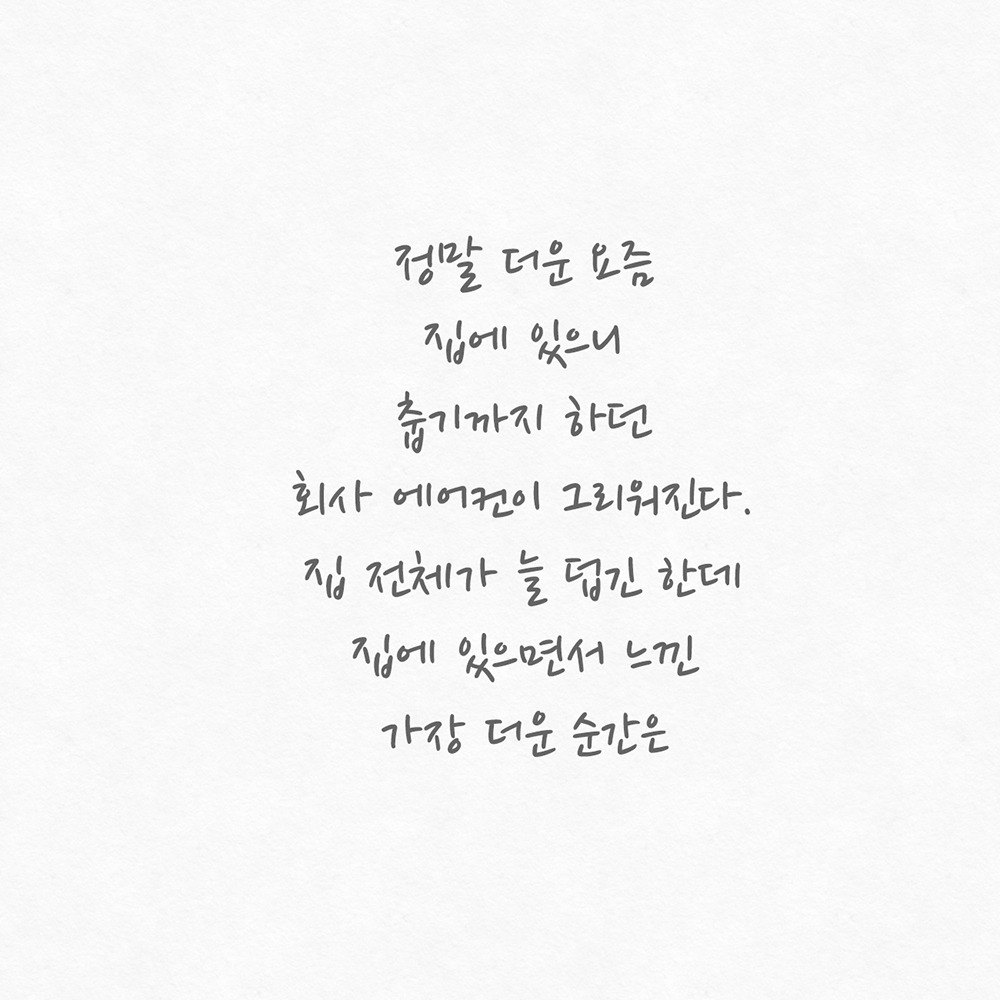 정말 더운 요즘
집에 있으니
춥기까지 하던
회사 에어컨이 그리워진다.
집 전체가 늘 덥긴 한데
집에 있으면서 느낀
가장 더운 순간은